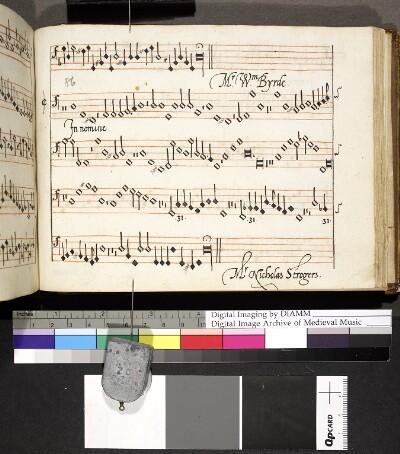 86
Mr Wm Byrde
In nomine
31.
31.
31.
Mr Nicholas Strogers.
inches
Digital Imaging by DIAMM
Digital Image Archive of Medieval Music
QPCARD